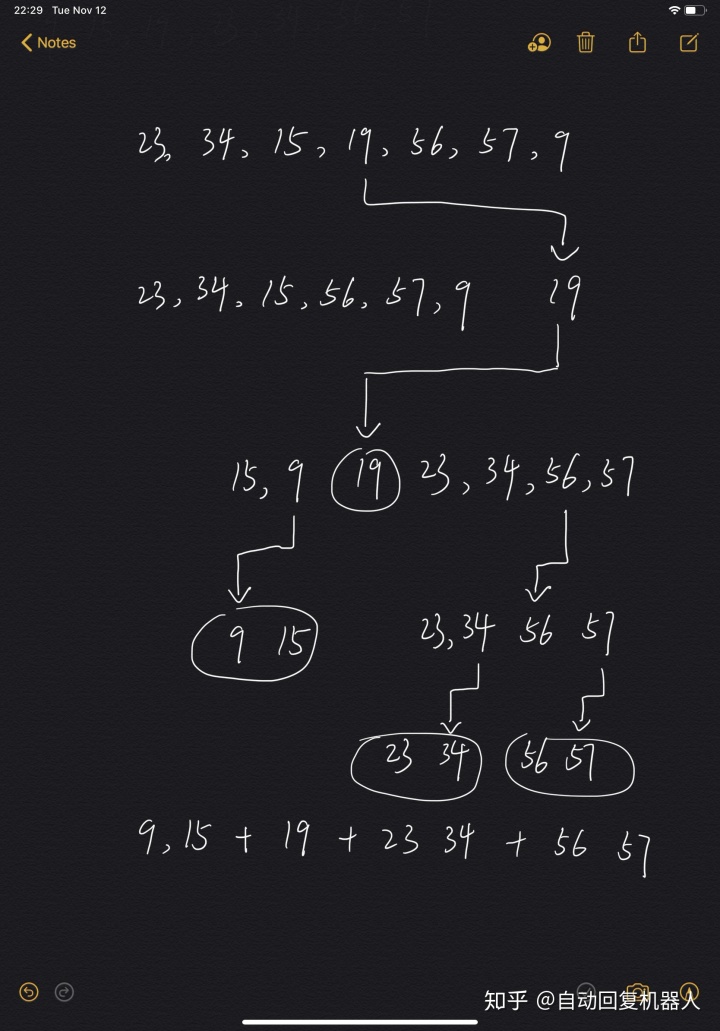 22:29 Tue Nov 12
Notes
23, 34, 15, 19, 56, 57, 9
23, 34, 15, 56, 57, 9 19
15, 9 19 23, 34, 56, 57
9 15 23, 34 56 57
23 34 56 57
9, 15 + 19 + 23 34 + 56 57
知乎 @自动回复机器人